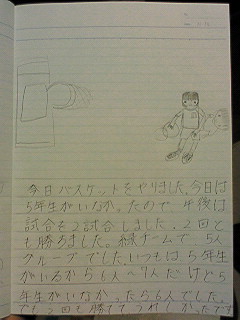 今日バスケットをやりました。今日は
5年生がいなかったので午後は
試合を2試合しました。2回と
も勝ちました。緑チームで5人
グループでした。いつもは5年生
がいるから6人〜7人だけど5
年生がいなかったら5人でした。
でも2回も勝ててうれしかったです